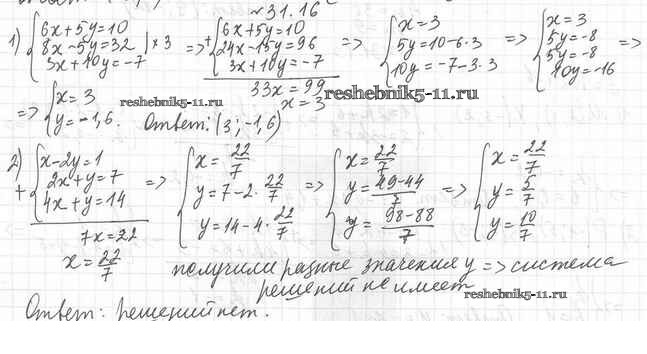 №31.16
1) { 6x+5y=10 ; 8x-5y=32 | ×3 ; 3x+10y=-7 => + { 6x+5y=10 ; 24x-15y=96 ; 3x+10y=-7 => { x=3 ; 5y=10-6·3 ; 10y=-7-3·3 => { x=3 ; 5y=-8 ; 5y=-8 ; 10y=-16 =>
33x=99
x=3
reshebnik5-11.ru
=> { x=3 ; y=-1,6. Ответ: (3; -1,6)
reshebnik5-11.ru
2) + { x-2y=1 ; 2x+y=7 ; 4x+y=14 => { x=22/7 ; y=7-2·22/7 ; y=14-4·22/7 => { x=22/7 ; y=49-44/7 ; y=98-88/7 => { x=22/7 ; y=5/7 ; y=10/7
7x=22
x=22/7
получили разные значения y => система
решений не имеет
reshebnik5-11.ru
Ответ: решений нет.